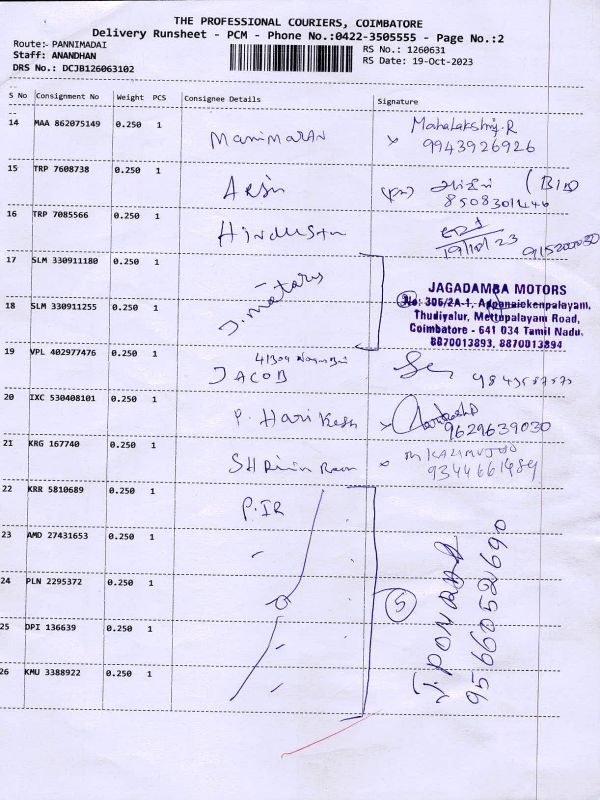 THE PROFESSIONAL COURIERS, COIMBATORE
Delivery Runsheet - PCM - Phone No.:0422-3505555 - Page No.:2
Route:- PANNIMADAI
RS No.: 1260631
Staff: ANANDHAN
RS Date: 19-Oct-2023
DRS No.: DCJB126063102
S No Consignment No Weight PCS Consignee Details Signature
14 MAA 862075149 0.250 1 Manimaran Mahalakshmi.R
9943926926
15 TRP 7608738 0.250 1
16 TRP 7085566 0.250 1 Hindustan
19/10/23
17 SLM 330911180 0.250 1
J. Motors
JAGADAMBA MOTORS
No: 306/2A-1, Appanaickenpalayam,
18 SLM 330911255 0.250 1
Thudiyalur, Mettupalayam Road,
Coimbatore - 641 034 Tamil Nadu.
8870013893, 8870013894
19 VPL 402977476 0.250 1 JACOB
20 IXC 530408101 0.250 1 P. Harikesh
9629639030
21 KRG 167740 0.250 1
22 KRR 5810689 0.250 1 P.IR
23 AMD 27431653 0.250 1
24 PLN 2295372 0.250 1
5
25 DPI 136639 0.250 1
26 KMU 3388922 0.250 1
9566052690